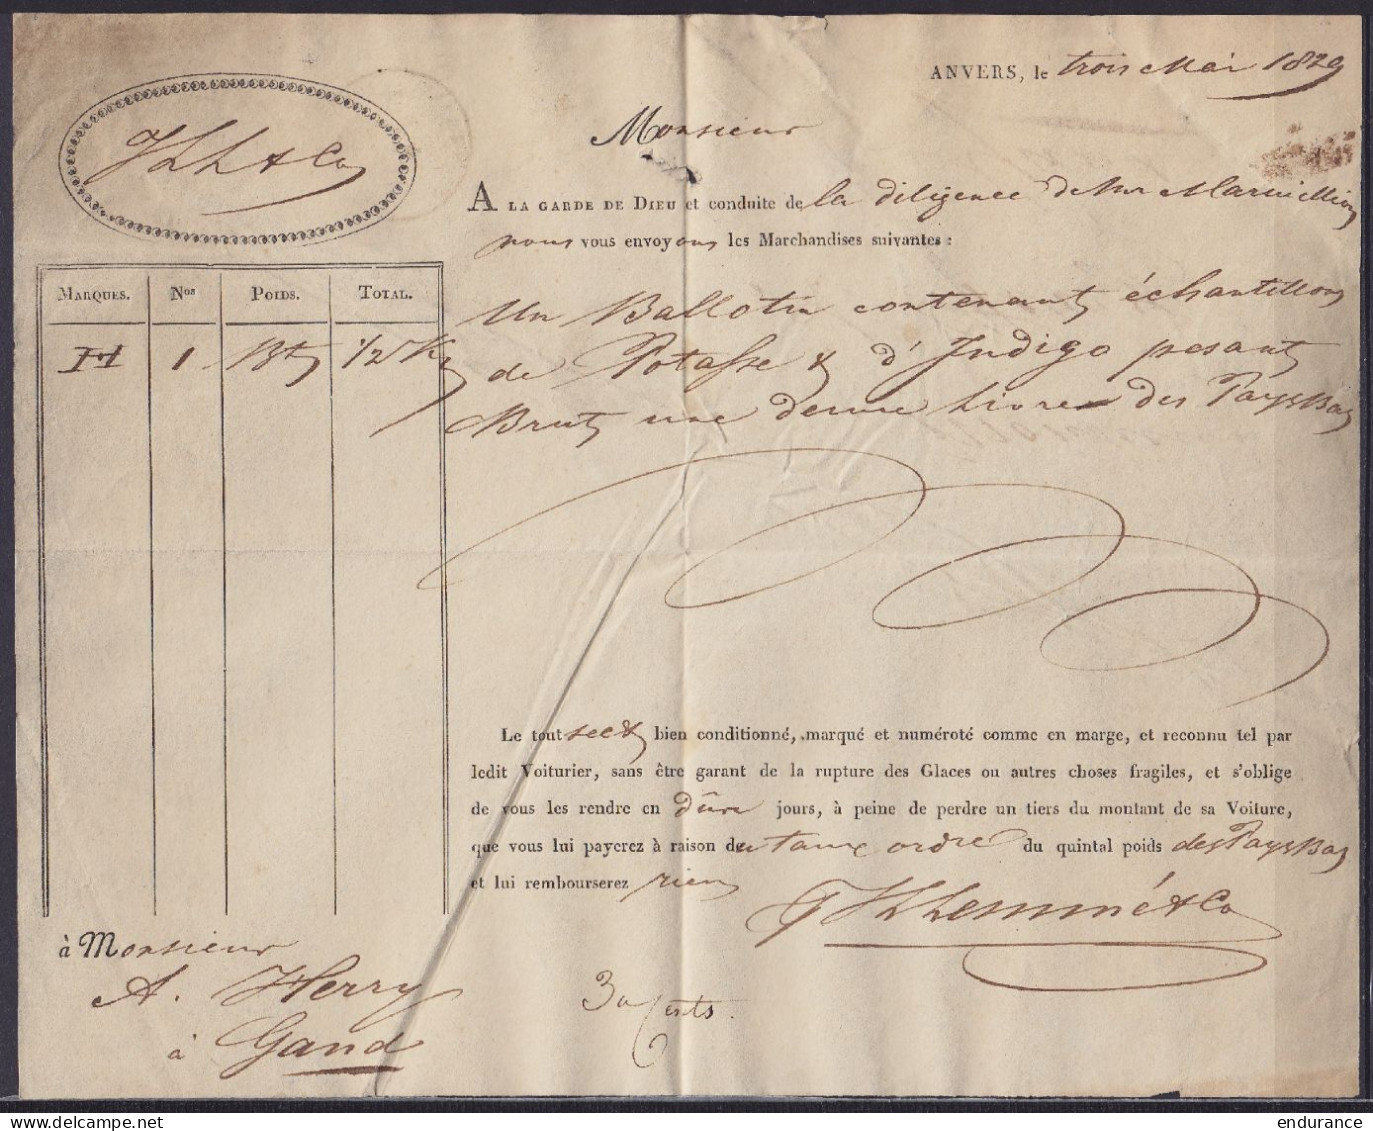 ANVERS, le trois Mai 1829
Monsieur
A LA GARDE DE DIEU et conduite de la diligence de Mr
nous vous envoyons les Marchandises suivantes :
MARQUES. Nos POIDS. TOTAL.
H 1 Bt 1/2 K
Un Ballotin contenant échantillons
de Potasse & d'Indigo pesant
Brut une demie Livre des Pays Bas
Le tout sec & bien conditionné, marqué et numéroté comme en marge, et reconnu tel par
ledit Voiturier, sans être garant de la rupture des Glaces ou autres choses fragiles, et s'oblige
de vous les rendre en jours, à peine de perdre un tiers du montant de sa Voiture,
que vous lui payerez à raison de taux ordre du quintal poids des Pays Bas
et lui rembourserez rien
Lemmé & Co
à Monsieur
A. Herry
à Gand
30 Cents.
endurance